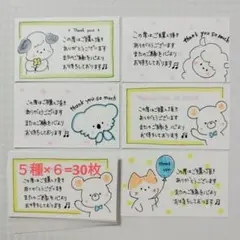 Thank you
この度はご購入頂き
ありがとうございます
またのご縁をこころより
お待ちしております♫
Thank you so much
この度はご購入頂き
ありがとうございます
またのご縁をこころより
お待ちしております♫
Thank you so much
この度はご購入頂き
ありがとうございます
またのご縁をこころより
お待ちしております♫
Thank you so much
この度はご購入頂き
ありがとうございます
またのご縁をこころより
お待ちしております♫
この度はご購入頂き
ありがとうございます
またのご縁をこころより
お待ちしております♫
5種×6=30枚
Thank you
この度はご購入頂き
ありがとうございます
またのご縁をこころより
お待ちしております♫